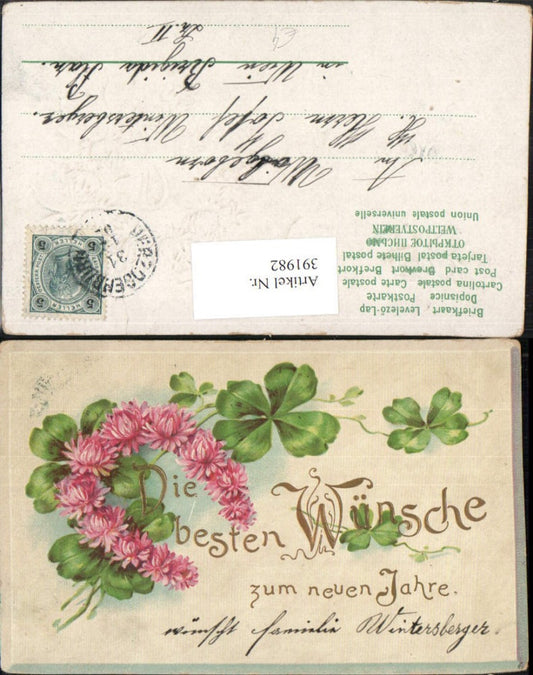 Briefkaart, Levelező-Lap
Dopisnice Postkarte
Cartolina postale Carte postale
Post card Brevkort Brefkort
Tarjeta postal Bilhete postal
ОТКРЫТОЕ ПИСЬМО
WELTPOSTVEREIN
Union postale universelle
An Wohlgeborn
Herrn Josef Wintersberger
in Wien
Artikel Nr.
391982
HERZOGENBURG
31
5 5
5 5
Die
besten Wünsche
zum neuen Jahre.
wünscht familie Wintersberger